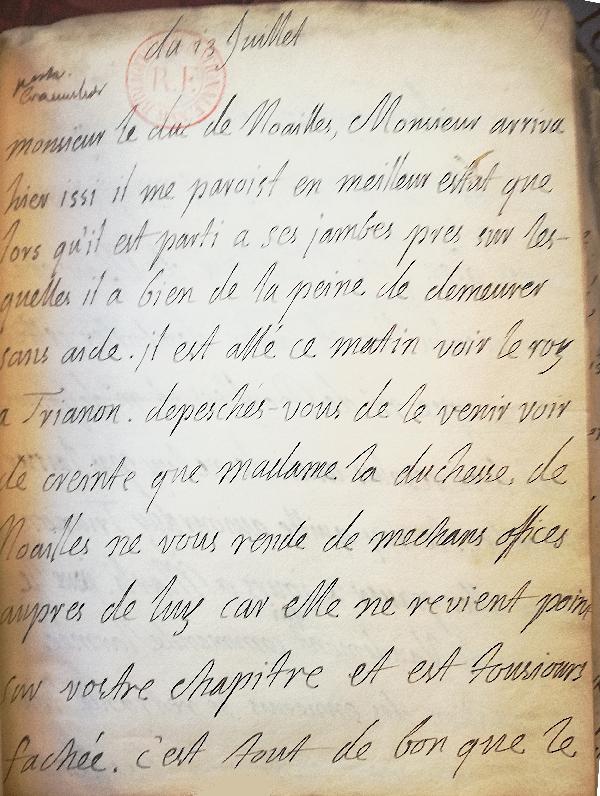 du 13 Juillet
R.F.
monsieur le duc de Noailles, Monsieur arriva
hier issi il me paroist en meilleur estat que
lors qu'il est parti a ses jambes pres sur les-
quelles il a bien de la peine de demeurer
sans aide. il est allé ce matin voir le roy
a Trianon. depeschés-vous de le venir voir
de creinte que madame la duchesse de
Noailles ne vous rende de mechans offices
aupres de luy car elle ne revient point
sur vostre chapitre et est tousiours
fachée. c'est tout de bon que le